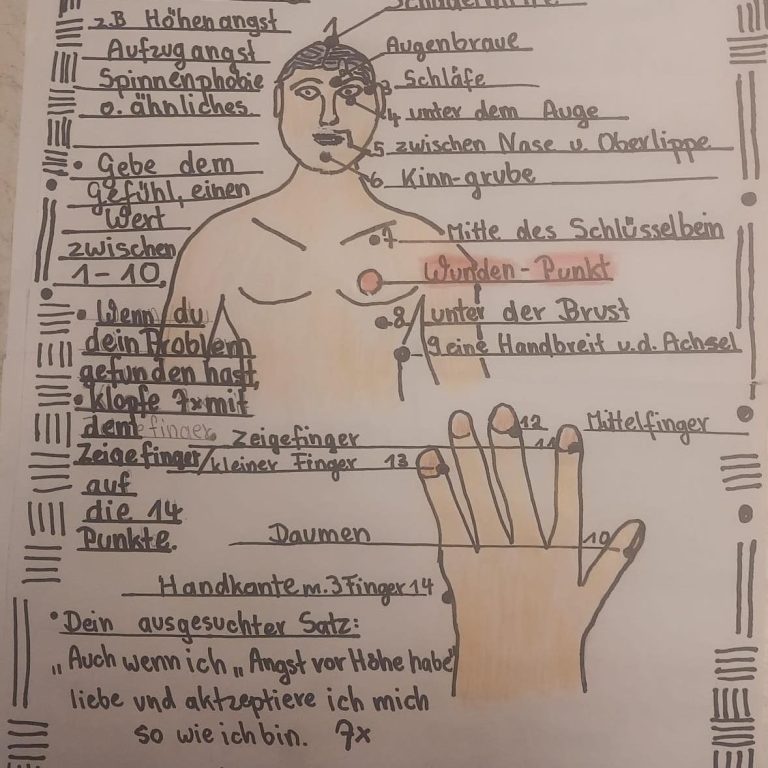 z.B Höhenangst
Aufzugangst
Spinnenphobie
o. ähnliches.
• Gebe dem
gefühl, einen
Wert
zwischen
1-10.
• Wenn du
dein Problem
gefunden hast,
• klopfe 7x mit
dem
Zeigefinger
auf
die 14
Punkte.
1
Augenbraue
3 Schläfe
4 unter dem Auge
5 zwischen Nase u. Oberlippe
6 Kinn-grube
7 Mitte des Schlüsselbein
Wunden-Punkt
8 unter der Brust
9 eine Handbreit u.d. Achsel
12 Mittelfinger
Zeigefinger 11
/kleiner Finger 13
Daumen 10
Handkante m. 3 Finger 14
• Dein ausgesuchter Satz:
„Auch wenn ich „Angst vor Höhe habe"
liebe und aktzeptiere ich mich
so wie ich bin. 7x